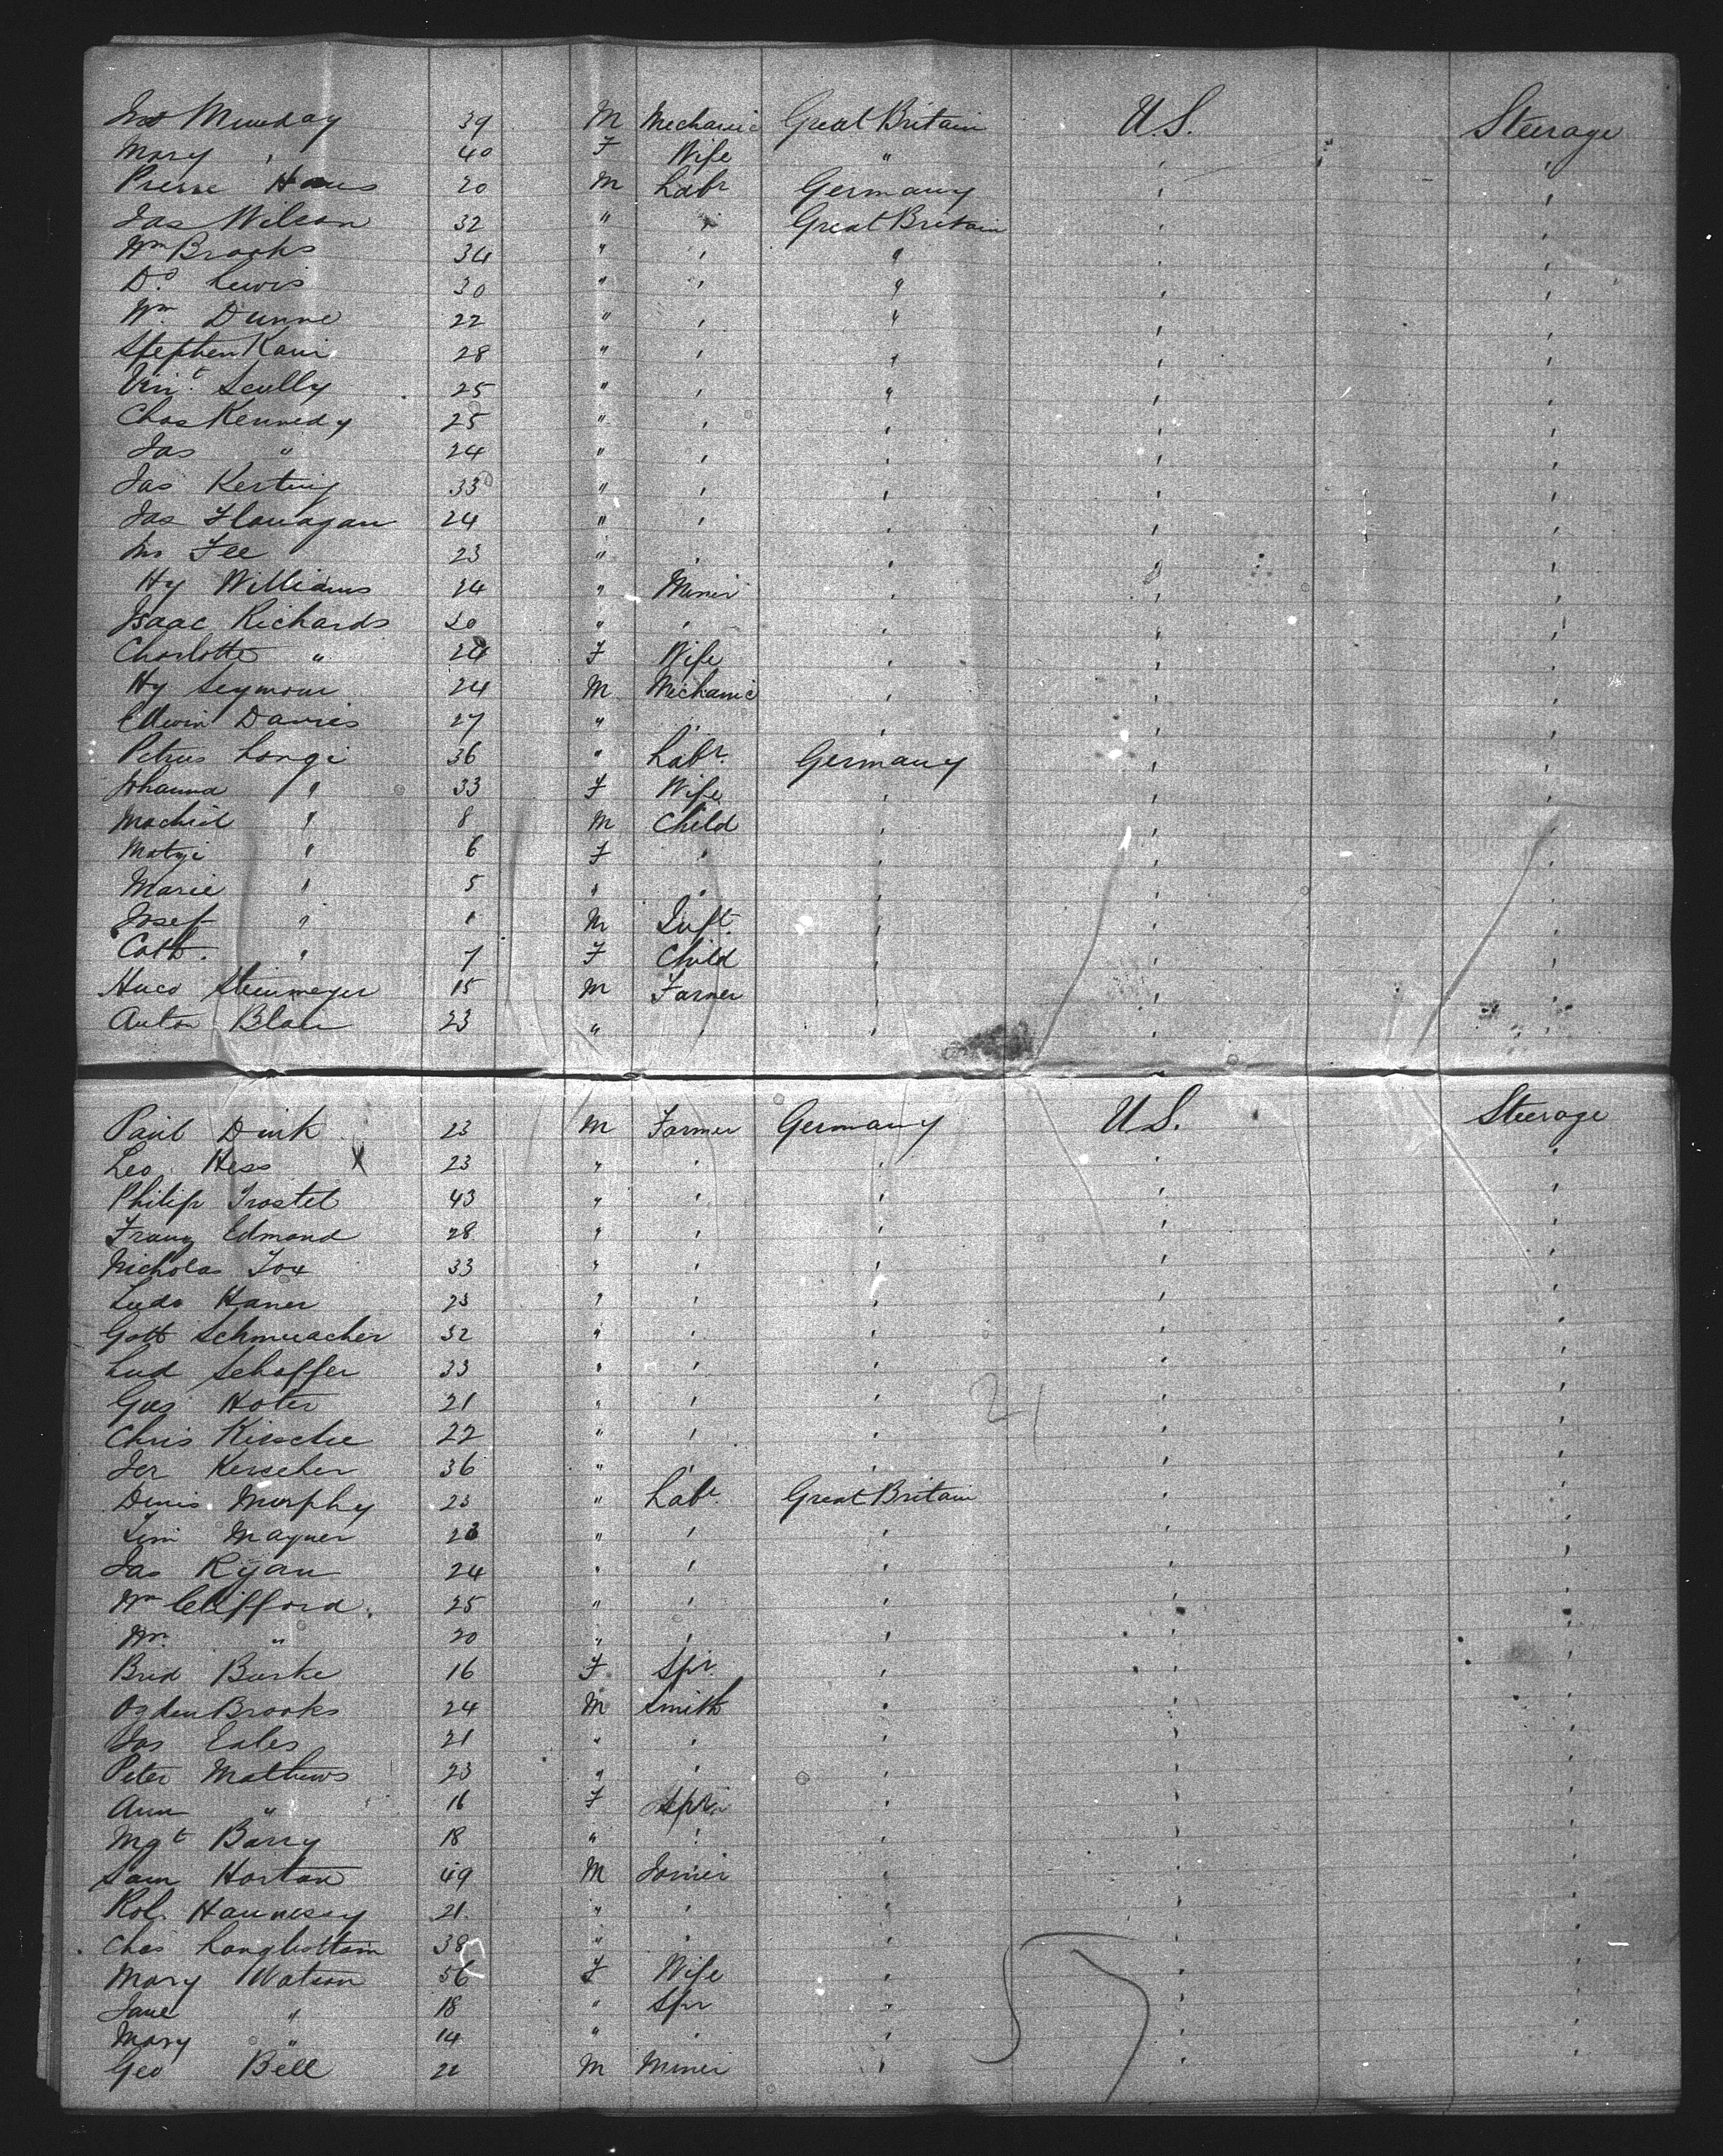 Munday 39 M Mechanic Great Britain U S. Steerage
Mary " 40 F Wife " " "
Haus 20 M Labr Germany " "
Jas Wilson 32 " " Great Britain " "
Wm Brooks 34 " " " " "
Do Lewis 30 " " " " "
Wm Dunne 22 " " " " "
Stephen 28 " " " " "
Vint Scully 25 " " " " "
Chas Kennedy 25 " " " " "
Jas " 24 " " " " "
Jas Kerting 33 " " " " "
Jas Flanagan 24 " " " " "
Fee 23 " " " " "
Hy Williams 24 " Miner " " "
Isaac Richards 20 " " " " "
Charlotte " 24 F Wife " " "
Hy Seymour 24 M Mechanic " " "
Edwin Davies 27 " " " " "
Petrus Longi 36 " Labr. Germany " "
Johanna " 33 F Wife " " "
" 8 M Child " " "
" 6 F " " " "
Marie " 5 " " " " "
Josef " 1 M Inft. " " "
Cath. " 7 F Child " " "
Steinmeyer 15 M Farmer " " "
Anton Blau 23 " " " " "
Paul Dink 23 M Farmer Germany U S. Steerage
Leo Hess X 23 " " " " "
Philip Trostel 43 " " " " "
Franz Edmond 28 " " " " "
Nicholas Fox 33 " " " " "
Ludo Haner 23 " " " " "
Gott Schmuacher 32 " " " " "
Lud Schaffer 33 " " " " "
Gus Hoter 21 " " " " "
Chris 22 " " " " "
Kerscher 36 " " " " "
Denis Murphy 23 " Labr. Great Britain " "
Tim Magner 23 " " " " "
Jas Ryan 24 " " " " "
Wm Clifford. 25 " " " " "
Wm. " 20 " " " " "
Brid Burke 16 F Spr. " " "
Ogden Brooks 24 M Smith " " "
Jas Eales 21 " " " " "
Peter Mathews 23 " " " " "
Ann " 16 F Spr. " " "
Mgt Barry 18 " " " " "
Sam Horton 49 M Joiner " " "
Rob. Hannessy 21 " " " " "
Chas Longbottom 38 " " " " "
Mary Watson 56 F Wife " " "
Jane " 18 " Spr " " "
Mary " 14 " " " " "
Geo Bell M Miner " " "